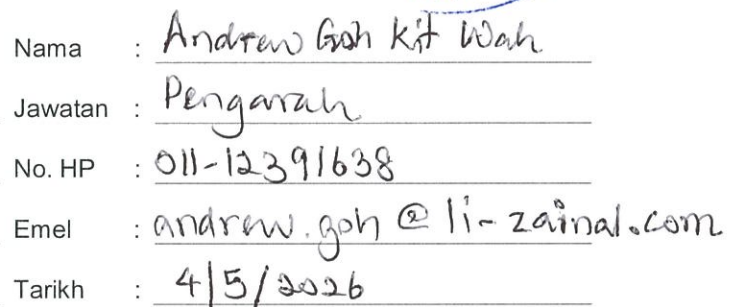 Nama : Andrew Goh Kit Wah
Jawatan : Pengarah
No. HP : 011-12391638
Emel : andrew.goh@li-zainal.com
Tarikh : 4/5/2026